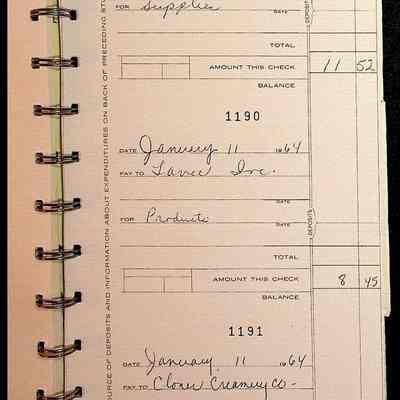 FOR Supplies DATE
TOTAL
AMOUNT THIS CHECK 11 52
BALANCE
1190
DATE January 11 1964
PAY TO Inc.
FOR Products DATE
DATE
DEPOSITS
TOTAL
AMOUNT THIS CHECK 8 45
BALANCE
1191
DATE January 11 1964
PAY TO Creamery Co-
DEPOSITS
OURCE OF DEPOSITS AND INFORMATION ABOUT EXPENDITURES ON BACK OF PRECEDING STU